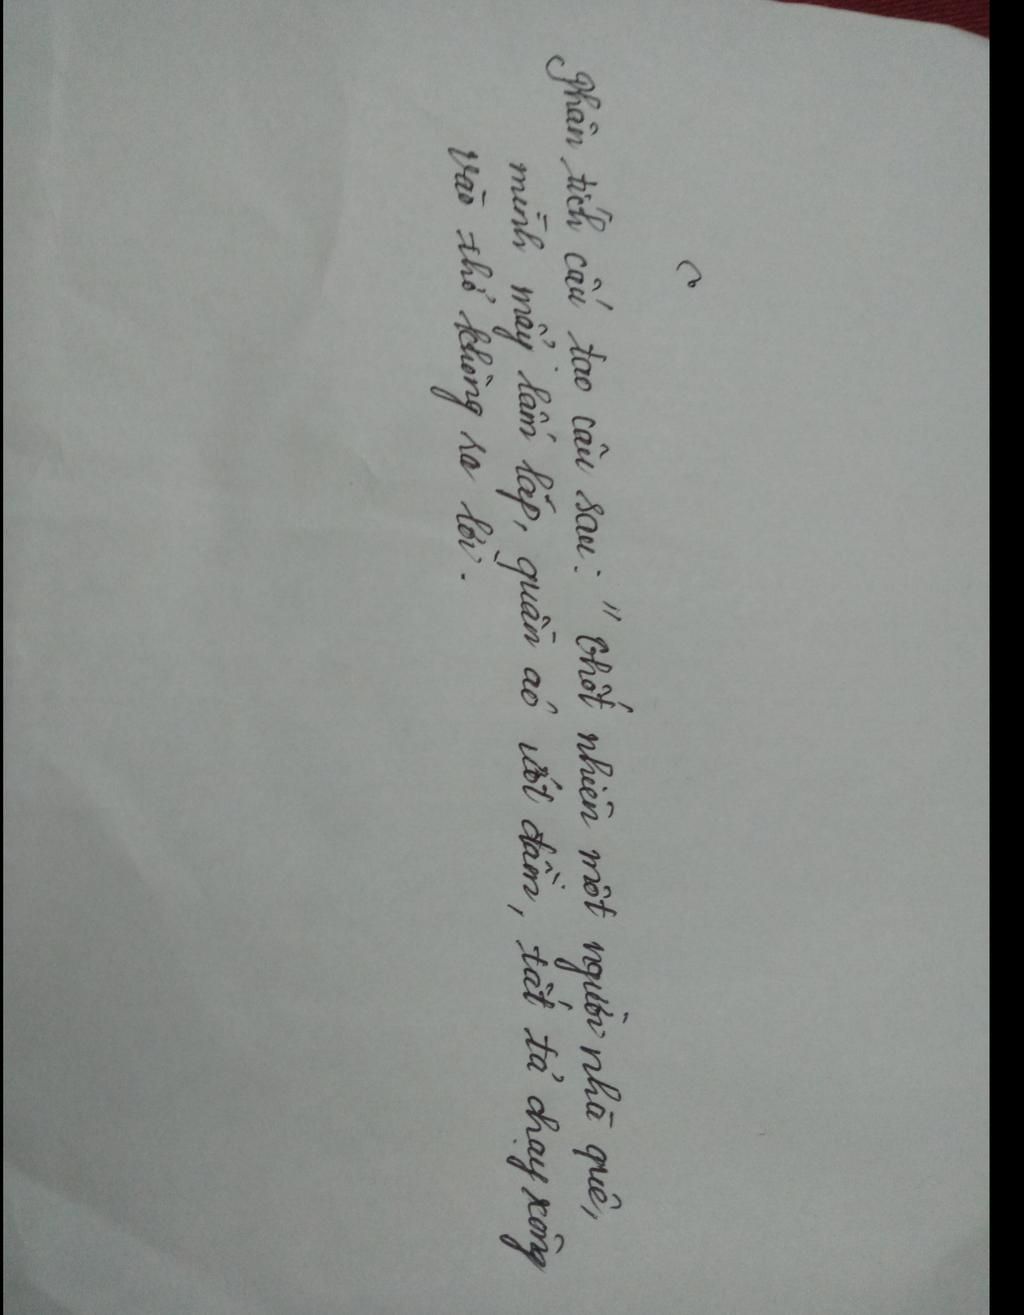 Phân tích cấu tạo câu sau: "Chốt nhiên một người nhà quê,
mình mẩy lấm láp, quần áo ướt đầm, tất tả chạy xông
vào thở không ra lời.